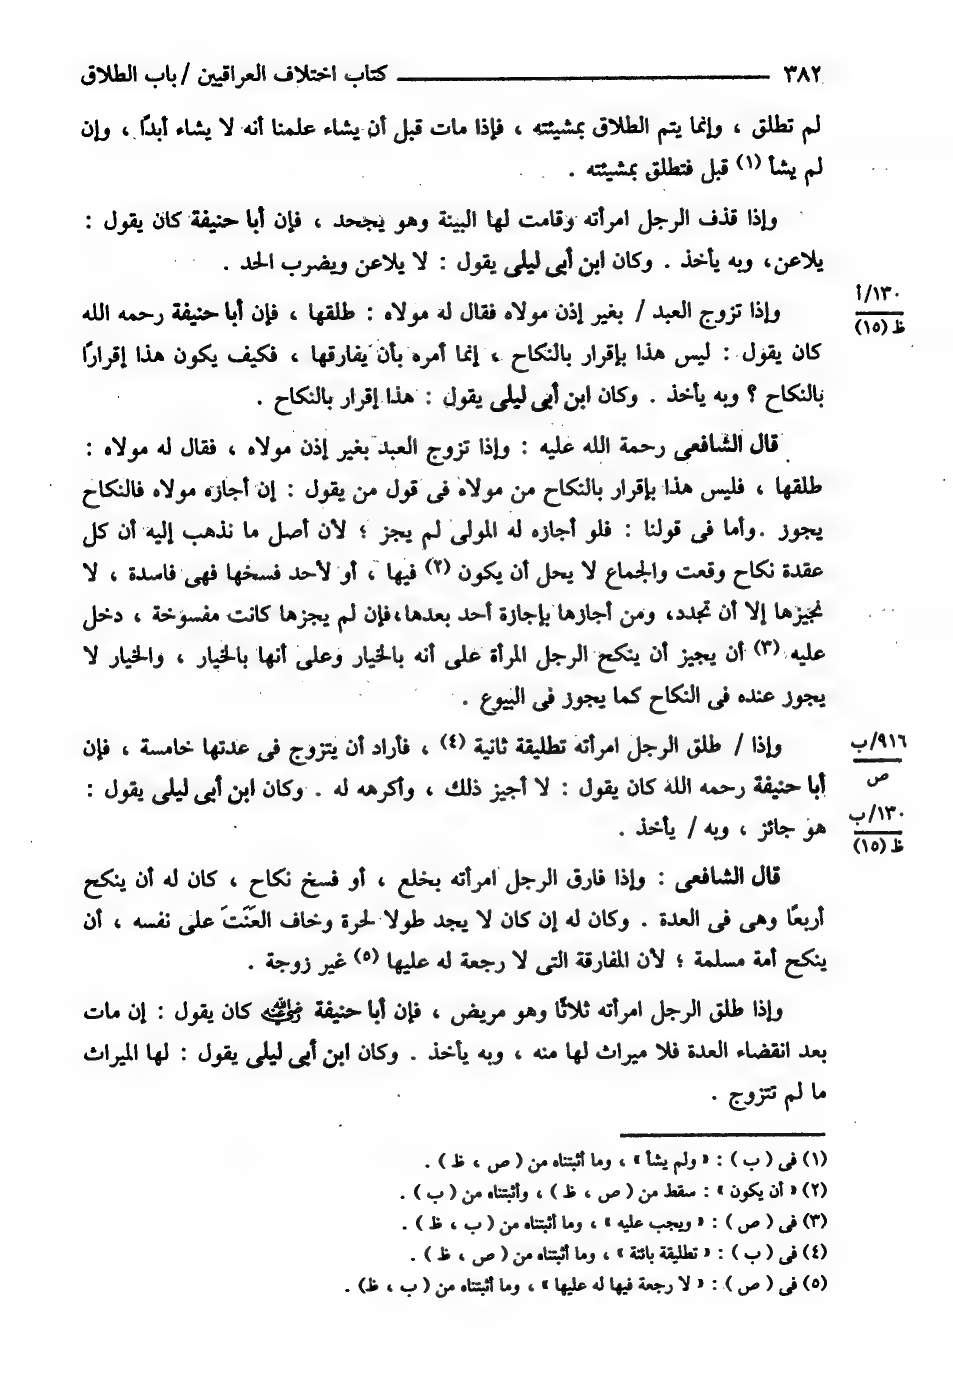 ٣٨٢ ـــــــــــــــــــــــــــ كتاب اختلاف العراقيين / باب الطلاق
لم تطلق ، وإنما يتم الطلاق بمشيئته ، فإذا مات قبل أن يشاء علمنا أنه لا يشاء أبدًا ، وإن
لم يشأ (١) قبل فتطلق بمشيئته .
وإذا قذف الرجل امرأته وقامت لها البينة وهو يجحد ، فإن أبا حنيفة كان يقول :
يلاعن، وبه يأخذ . وكان ابن أبى ليلى يقول : لا يلاعن ويضرب الحد .
وإذا تزوج العبد / بغير إذن مولاه فقال له مولاه : طلقها ، فإن أبا حنيفة رحمه الله
١٣٠/أ
ظ (١٥)
كان يقول : ليس هذا بإقرار بالنكاح ، إنما أمره بأن يفارقها ، فكيف يكون هذا إقرارًا
بالنكاح ؟ وبه يأخذ . وكان ابن أبى ليلى يقول : هذا إقرار بالنكاح .
قال الشافعى رحمة الله عليه : وإذا تزوج العبد بغير إذن مولاه ، فقال له مولاه :
طلقها ، فليس هذا بإقرار بالنكاح من مولاه فى قول من يقول : إن أجازه مولاه فالنكاح
يجوز .وأما فى قولنا : فلو أجازه له المولى لم يجز ؛ لأن أصل ما نذهب إليه أن كل
عقدة نكاح وقعت والجماع لا يحل أن يكون (٢) فيها ، أو لأحد فسخها فهى فاسدة ، لا
نجيزها إلا أن تجدد، ومن أجازها بإجازة أحد بعدها،فإن لم يجزها كانت مفسوخة ، دخل
عليه (٣) أن يجيز أن ينكح الرجل المرأة على أنه بالخيار وعلى أنها بالخيار ، والخيار لا
يجوز عنده فى النكاح كما يجوز فى البيوع .
وإذا / طلق الرجل امرأته تطليقة ثانية (٤) ، فأراد أن يتزوج فى عدتها خامسة ، فإن
٩١٦/ب
ص
أبا حنيفة رحمه الله كان يقول : لا أجيز ذلك ، وأكرهه له . وكان ابن أبى ليلى يقول :
هو جائز ، وبه / يأخذ .
١٣٠/ب
ظ (١٥)
قال الشافعى : وإذا فارق الرجل امرأته بخلع ، أو فسخ نكاح ، كان له أن ينكح
أربعًا وهى فى العدة . وكان له إن كان لا يجد طولا لحرة وخاف العَنَتَ على نفسه ، أن
ينكح أمة مسلمة ؛ لأن المفارقة التى لا رجعة له عليها (٥) غير زوجة .
وإذا طلق الرجل امرأته ثلاثًا وهو مريض ، فإن أبا حنيفة رضي الله عنه كان يقول : إن مات
بعد انقضاء العدة فلا ميراث لها منه ، وبه يأخذ . وكان ابن أبى ليلى يقول : لها الميراث
ما لم تتزوج .
(١) فى ( ب ) : « ولم يشأ » ، وما أثبتناه من ( ص ، ظ ) .
(٢) « أن يكون » : سقط من ( ص ، ظ ) ، وأثبتناه من ( ب ) .
(٣) فى ( ص ) : « ويجب عليه » ، وما أثبتناه من ( ب ، ظ ) .
(٤) فى ( ب ) : « تطليقة بائنة » ، وما أثبتناه من ( ص ، ظ ) .
(٥) فى ( ص ) : « لا رجعة فيها له عليها » ، وما أثبتناه من ( ب ، ظ) .